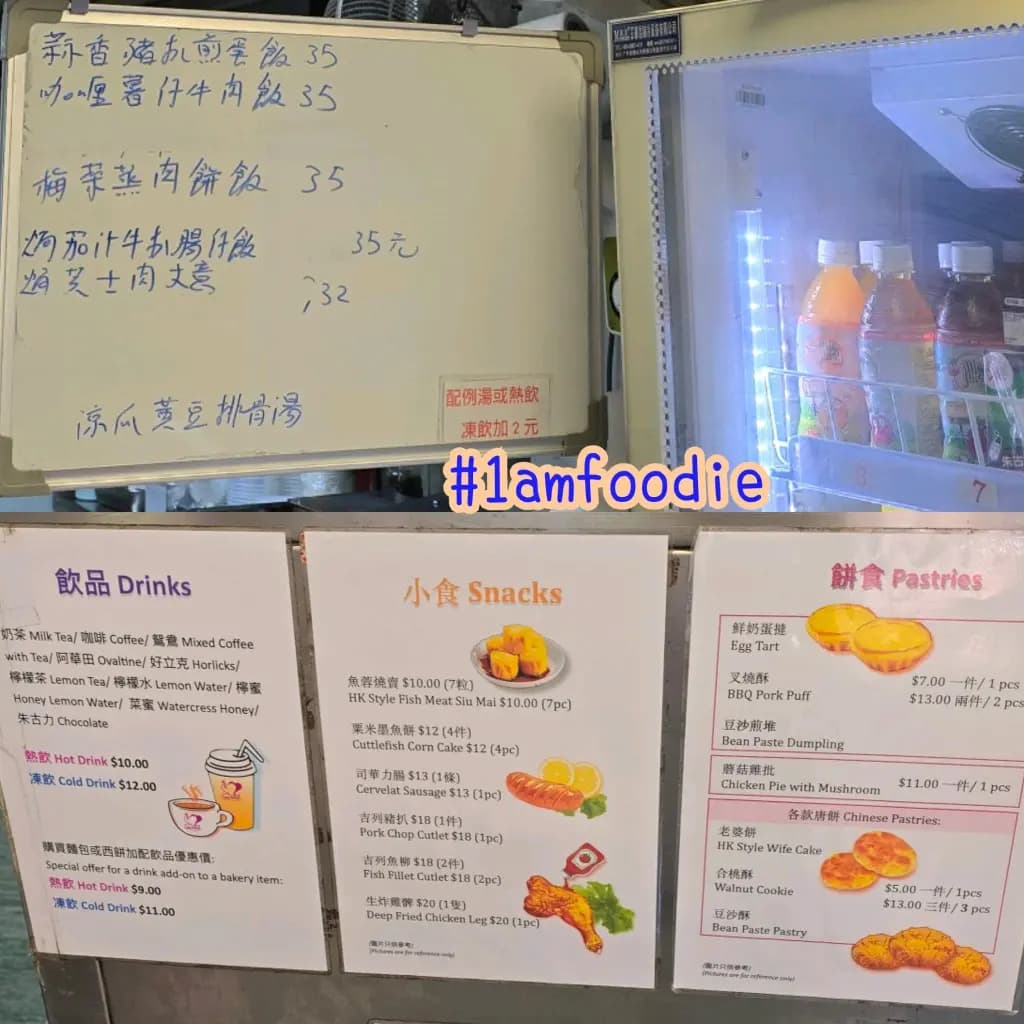 蒜香豬扒煎蛋飯 35
咖喱薯仔牛肉飯 35
梅菜蒸肉餅飯 35
焗茄汁牛扒腸仔飯 35元
焗芝士肉丈意 ;32
涼瓜黃豆排骨湯
配例湯或熱飲
凍飲加2元
7
#1amfoodie
飲品 Drinks
奶茶 Milk Tea/ 咖啡 Coffee/ 鴛鴦 Mixed Coffee
with Tea/ 阿華田 Ovaltine/ 好立克 Horlicks/
檸檬茶 Lemon Tea/ 檸檬水 Lemon Water/ 檸蜜
Honey Lemon Water/ 菜蜜 Watercress Honey/
朱古力 Chocolate
熱飲 Hot Drink $10.00
凍飲 Cold Drink $12.00
購買麵包或西餅加配飲品優惠價:
Special offer for a drink add-on to a bakery item:
熱飲 Hot Drink $9.00
凍飲 Cold Drink $11.00
小食 Snacks
魚蓉燒賣 $10.00 (7粒)
HK Style Fish Meat Siu Mai $10.00 (7pc)
粟米墨魚餅 $12 (4件)
Cuttlefish Corn Cake $12 (4pc)
司華力腸 $13 (1條)
Cervelat Sausage $13 (1pc)
吉列豬扒 $18 (1件)
Pork Chop Cutlet $18 (1pc)
吉列魚柳 $18 (2件)
Fish Fillet Cutlet $18 (2pc)
生炸雞髀 $20 (1隻)
Deep Fried Chicken Leg $20 (1pc)
(圖片只供參考)
(Pictures are for reference only)
餅食 Pastries
鮮奶蛋撻
Egg Tart
叉燒酥
BBQ Pork Puff
$7.00 一件/ 1 pcs
$13.00 兩件/ 2 pcs
豆沙煎堆
Bean Paste Dumpling
蘑菇雞批
Chicken Pie with Mushroom
$11.00 一件/ 1 pcs
各款唐餅 Chinese Pastries:
老婆餅
HK Style Wife Cake
合桃酥
Walnut Cookie
$5.00 一件/ 1pcs
$13.00 三件/ 3 pcs
豆沙酥
Bean Paste Pastry
(圖片只供參考)
(Pictures are for reference only)